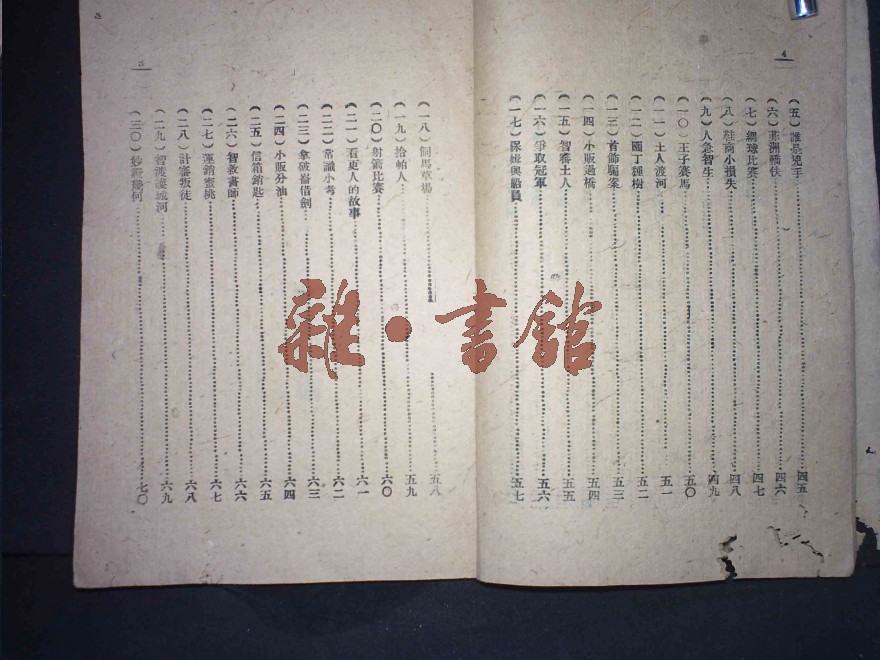 4
(五)誰是兇手……四五
(六)非洲轎伕……四六
(七)網球比賽……四七
(八)鞋商小損失……四八
(九)人急智生……四九
(一〇)王子賽馬……五〇
(一一)土人渡河……五一
(一二)園丁種樹……五二
(一三)首飾騙案……五三
(一四)小販過橋……五四
(一五)智襲土人……五五
(一六)爭取冠軍……五六
(一七)保姆與船員……五七
5
(一八)飼馬草場……五八
(一九)拾帕人……五九
(二〇)射箭比賽……六〇
(二一)看更人的故事……六一
(二二)常識小考……六二
(二三)拿破崙借劍……六三
(二四)小販分油……六四
(二五)信箱鎖匙……六五
(二六)智救畫師……六六
(二七)運銷蜜桃……六七
(二八)計審叛徒……六八
(二九)智渡護城河……六九
(三〇)鈔票幾何……七〇
雜·書館